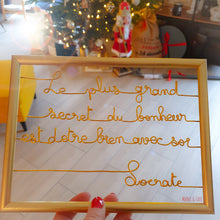 Le plus grand
secret du bonheur
est d'être bien avec soi
Socrate